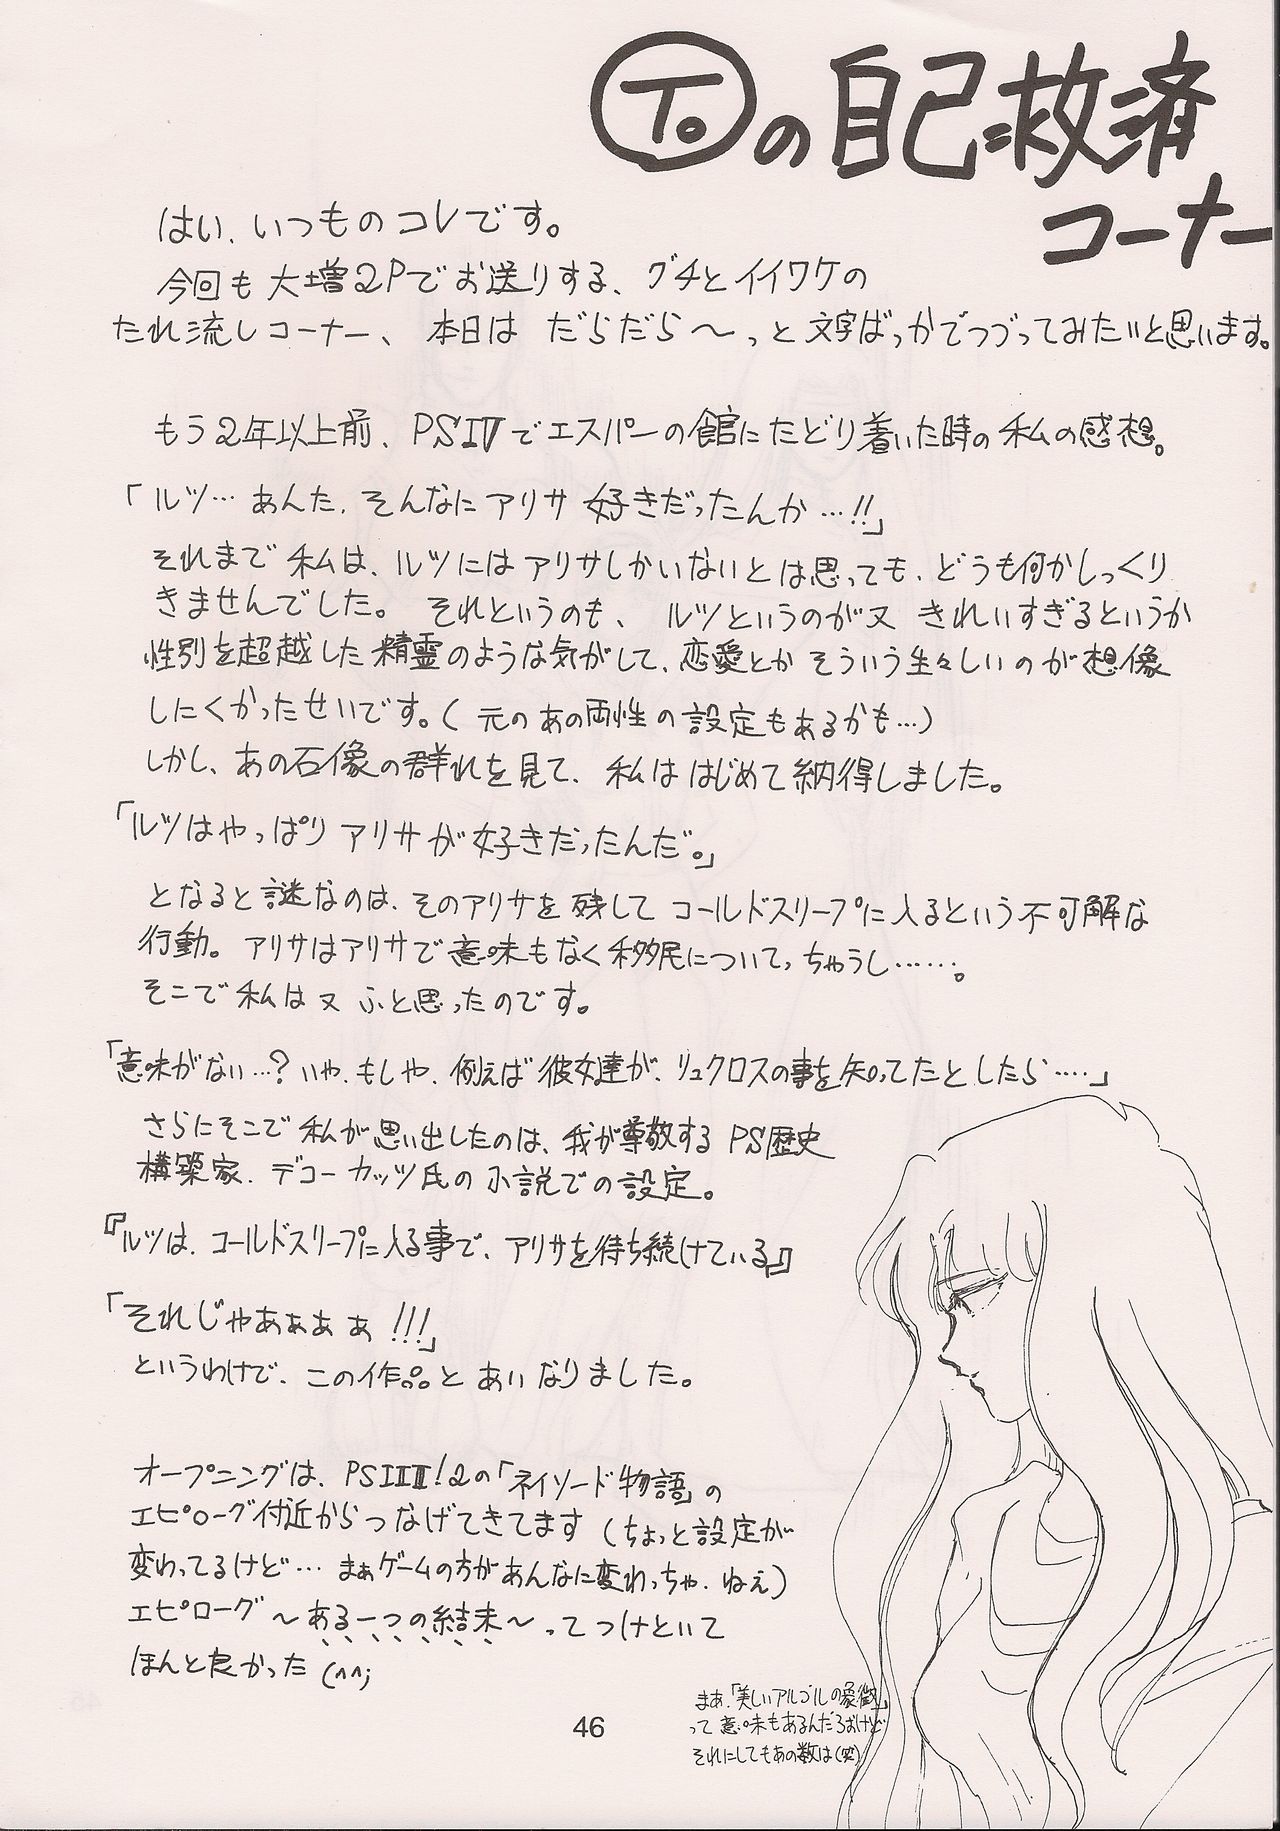 Toの自己救済
コーナー
はい、いつものコレです。
今回も大増2Pでお送りする、グチとイイワケの
たれ流しコーナー、本日は だらだら〜っと文字ばっかでつづってみたいと思います。
もう2年以上前、PSIVでエスパーの館にたどり着いた時の私の感想。
「ルツ…あんた、そんなにアリサ好きだったんか…!!」
それまで私は、ルツにはアリサしかいないとは思っても、どうも何かしっくり
きませんでした。それというのも、ルツというのが又 きれいすぎるというか
性別を超越した精霊のような気がして、恋愛とかそういう生々しいのが想像
しにくかったせいです。(元のあの両性の設定もあるかも…)
しかし、あの石像の群れを見て、私ははじめて納得しました。
「ルツはやっぱりアリサが好きだったんだ。」
となると謎なのは、そのアリサを残してコールドスリープに入るという不可解な
行動。アリサはアリサで意味もなく移民についてっちゃうし……。
そこで私は又ふと思ったのです。
「意味がない…?いや、もしや、例えば彼女達が、リュクロスの事を知ってたとしたら…‥」
さらにそこで私が思い出したのは、我が尊敬するPS歴史
構築家、デコー カッツ氏の小説での設定。
『ルツは、コールドスリープに入る事で、アリサを待ち続けている』
「それじゃあぁぁぁ!!!」
というわけで、この作品とあいなりました。
オープニングは、PSIIII!2の「ネイソード物語」の
エピローグ付近からつなげてきてます(ちょっと設定が
変わってるけど…まぁゲームの方があんなに変わっちゃ、ねぇ)
エピローグ〜ある一つの結末〜ってつけといて
ほんと良かった(^^;
まあ、「美しいアルゴルの象徴」
って意味もあるんだろおけど
それにしてもあの数は(笑)
46